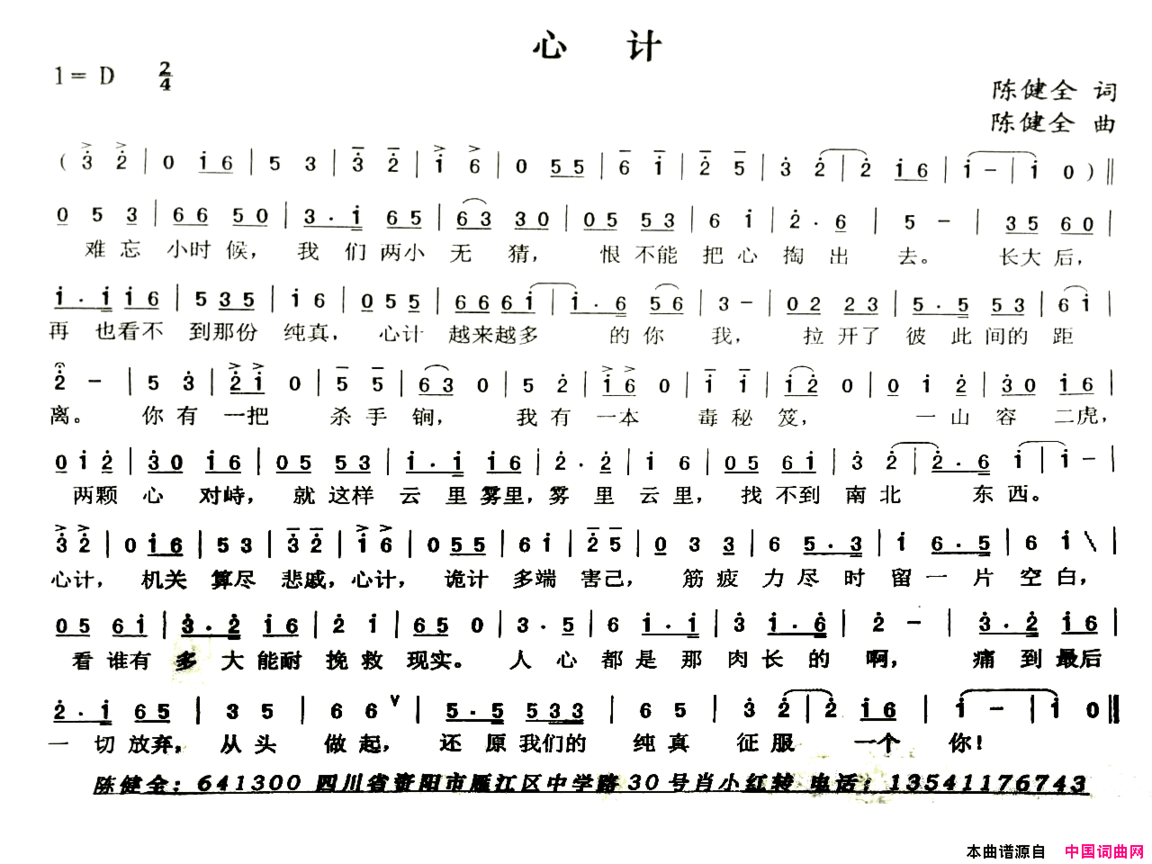 心 计
1= D 2/4
陈健全 词
陈健全 曲
( 3 2 | 0 i 6 | 5 3 | 3 2 | i 6 | 0 5 5 | 6 i | 2 5 | 3 2 | 2 i 6 | i - | i 0 ) ‖
0 5 3 | 6 6 5 0 | 3 . i 6 5 | 6 3 3 0 | 0 5 5 3 | 6 i | 2 . 6 | 5 - | 3 5 6 0 |
难 忘 小时 候, 我 们 两小 无 猜, 恨 不能 把 心 掏 出 去。 长大 后,
i . i i 6 | 5 3 5 | i 6 | 0 5 5 | 6 6 6 i | i . 6 5 6 | 3 - | 0 2 2 3 | 5 . 5 5 3 | 6 i |
再 也看不 到那份 纯真, 心计 越来越多 的 你 我, 拉 开了 彼 此 间的 距
2 - | 5 3 | 2 i 0 | 5 5 | 6 3 0 | 5 2 | i 6 0 | i i | i 2 0 | 0 i 2 | 3 0 i 6 |
离。 你 有 一把 杀 手 锏, 我 有 一 本 毒 秘 笈, 一 山 容 二虎,
0 i 2 | 3 0 i 6 | 0 5 5 3 | i . i i 6 | 2 . 2 | i 6 | 0 5 6 i | 3 2 | 2 . 6 | i | i - |
两颗 心 对峙, 就 这样 云 里 雾里, 雾 里 云 里, 找 不到 南 北 东 西。
3 2 | 0 i 6 | 5 3 | 3 2 | i 6 | 0 5 5 | 6 i | 2 5 | 0 3 3 | 6 5 . 3 | i 6 . 5 | 6 i \ |
心计, 机关 算尽 悲戚, 心计, 诡计 多端 害己, 筋 疲 力 尽 时 留 一 片 空 白,
0 5 6 i | 3 . 2 i 6 | 2 i | 6 5 0 | 3 . 5 | 6 i . i | 3 i . 6 | 2 - | 3 . 2 i 6 |
看 谁有 多 大 能耐 挽 救 现实。 人 心 都 是 那 肉 长 的 啊, 痛 到 最后
2 . i 6 5 | 3 5 | 6 6 ∨ | 5 . 5 5 3 3 | 6 5 | 3 2 | 2 i 6 | i - | i 0 ‖
一 切 放弃, 从 头 做 起, 还 原 我们的 纯 真 征 服 一个 你!
陈健全: 641300 四川省资阳市雁江区中学路30号肖小红转 电话: 13541176743
本曲谱源自 中国词曲网